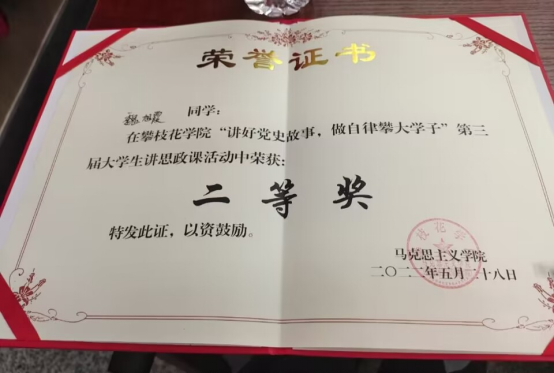 荣誉证书
同学：
在攀枝花学院“讲好党史故事，做自律攀大学子”第三
届大学生讲思政课活动中荣获：
二等奖
特发此证，以资鼓励。
马克思主义学院
二〇二二年五月二十八日